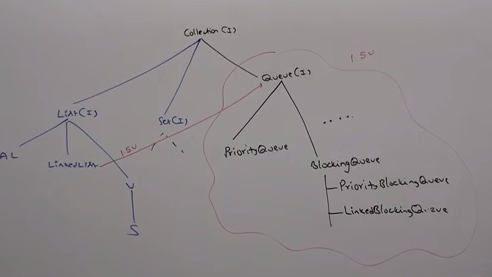 Collection(I)
1.5V
Queue(I)
List(I)
Set(I)
1.5V
AL
LinkedList
PriorityQueue
BlockingQueue
V
PriorityBlockingQueue
LinkedBlockingQueue
S